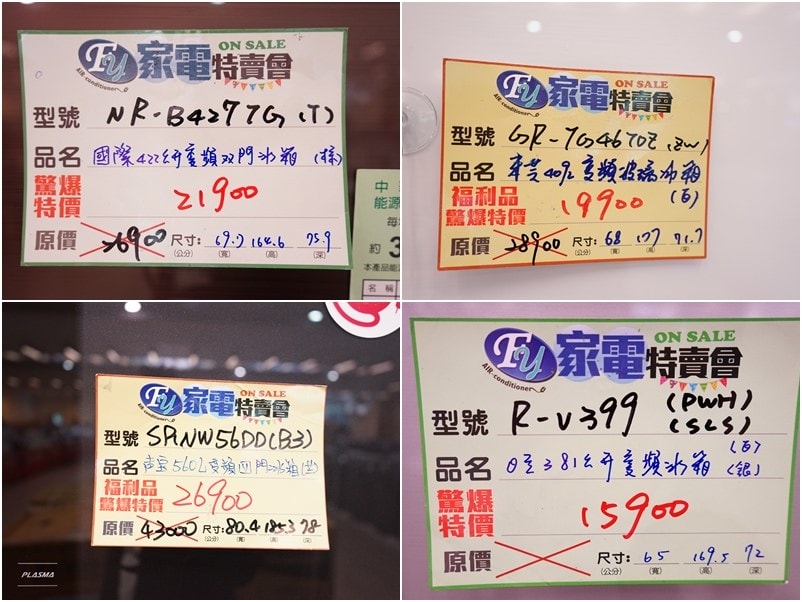 Fy 家電特賣會 ON SALE
AIR-conditioner
型號 NR-B427TG (T)
品名 國際422公升變頻双門冰箱 (棕)
驚爆特價 21900
原價 26900 尺寸: 69.7 164.6 75.9
(公分) (寬) (高) (深)
中
能源
每
約 3
本產品能
名稱
Fy 家電特賣會 ON SALE
AIR-conditioner
型號 GR-7G46TDZ (ZW)
品名 東芝409L變頻玻璃冰箱 (百)
福利品
驚爆特價 19900
原價 28900 尺寸: 68 177 71.7
(公分) (寬) (高) (深)
Fy 家電特賣會 ON SALE
AIR-conditioner
型號 SR-NW56DD(B3)
品名 声宝560L變頻四門冰箱
福利品
驚爆特價 26900
原價 43000 尺寸: 80.4 185.3 78
(公分) (寬) (高) (深)
PLASMA
Fy 家電特賣會 ON SALE
AIR-conditioner
型號 R-V399 (PWH)
(SLS)
品名 日立381公升變頻冰箱 (百)
(銀)
驚爆特價 15900
原價 尺寸: 65 169.5 72
(公分) (寬) (高) (深)